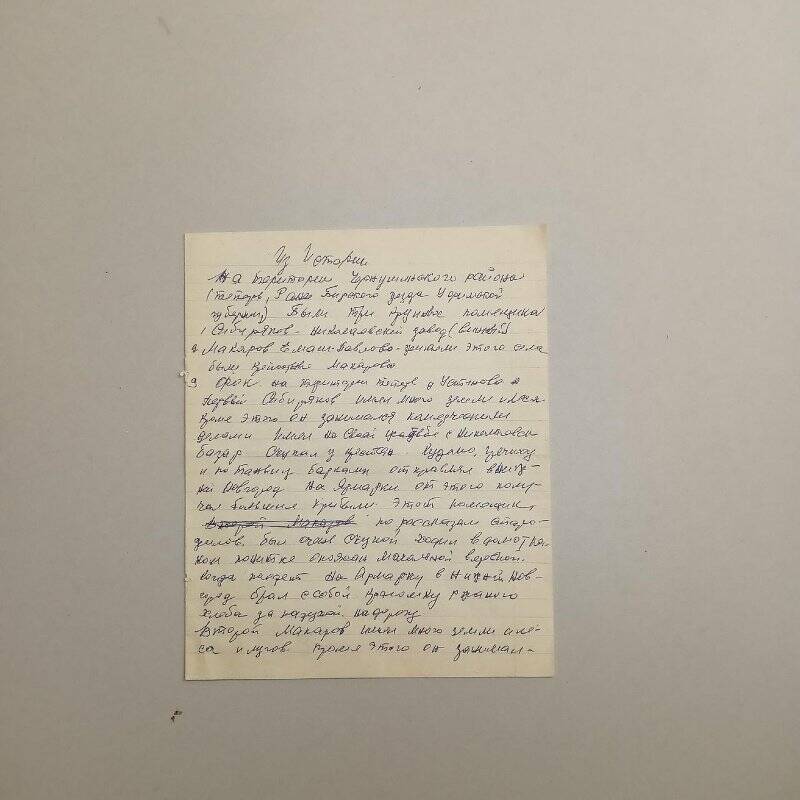 Из Истории
На територии Чернушинского района
(теперь, Ране Бирского уезда Уфимской
губернии) Были три крупных помещика
1 Сибиряков - Николаевский завод (винный)
2 Макаров Емаш-Павлово - жители этого села
были Макарова
3 на територии теперь д Устиново
первый Сибиряков имел много земли и леса
кроме этого он занимался комерческими
делами имел на своей усадьбе с Николаевск
базар Скупал у крестьян. Кудлю, гречиху
и по Танвиц Барками отправлял в Ниж-
ний Новгород На Ярмарки от этого полу-
чал большие прибыли Этот помещик,
Второй Макаров по рассказам старо-
жилов. был очень скупой ходил в домотка-
ном понитке опоясан мочальной веревкой.
когда поедет на Ярмарку в Нижний Нов-
город брал с собой краюшку ржаного
хлеба за пазухой. на дорогу
Второй Макаров имел много земли и ле-
са и лугов кроме этого он занимал-